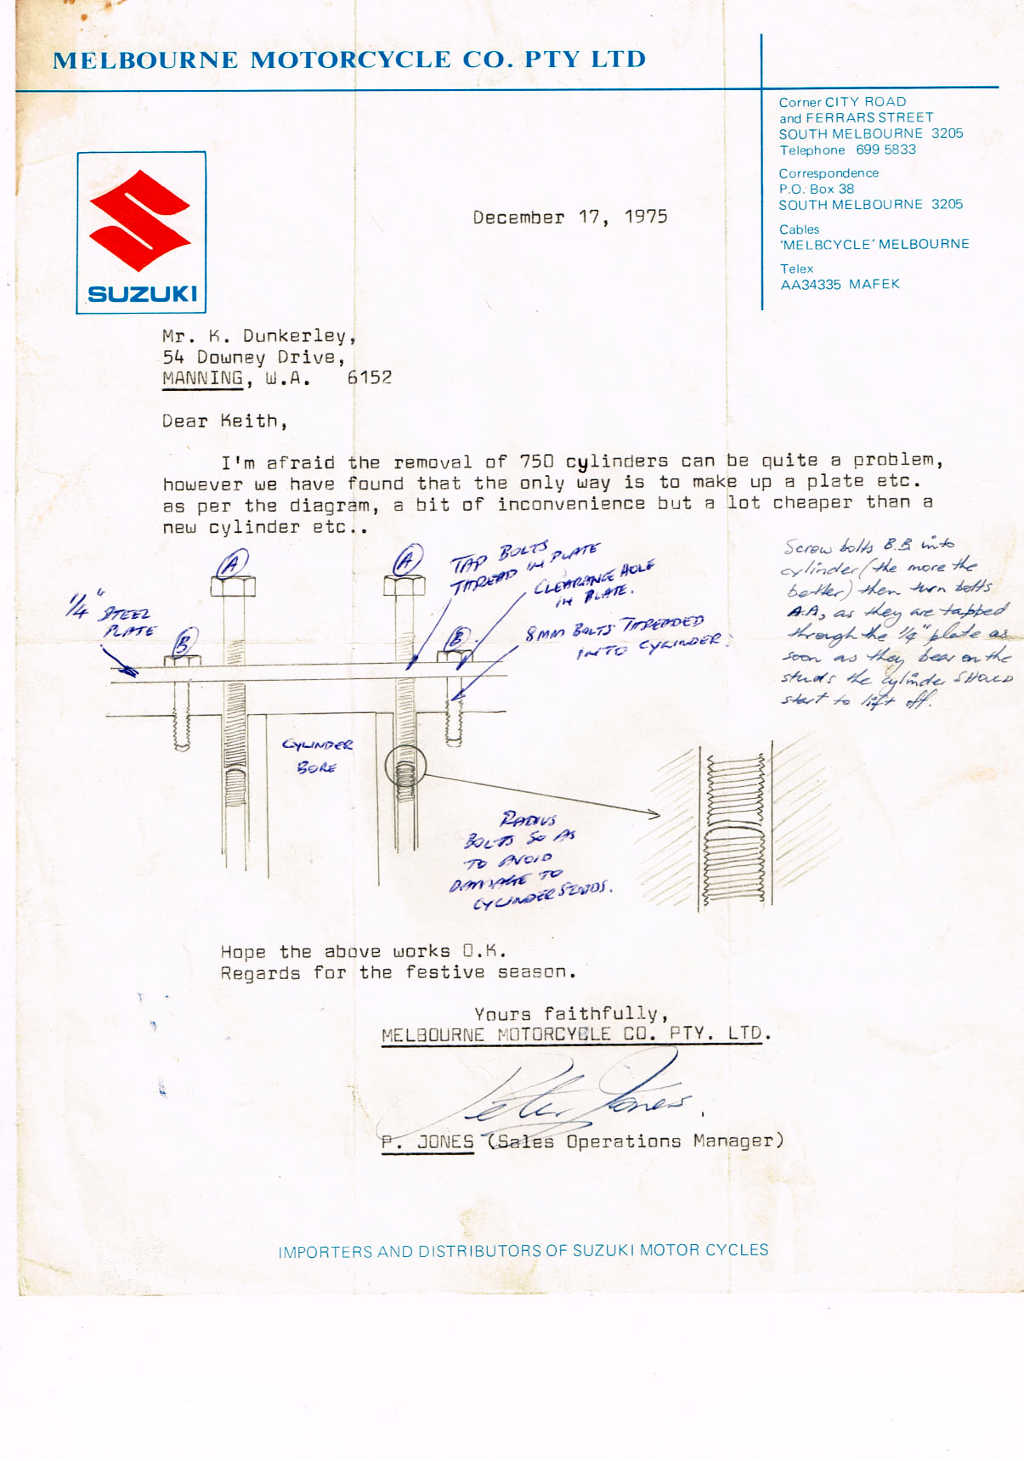 MELBOURNE MOTORCYCLE CO. PTY LTD
Corner CITY ROAD
and FERRARS STREET
SOUTH MELBOURNE 3205
Telephone 699 5833
Correspondence
P.O. Box 38
SOUTH MELBOURNE 3205
Cables
'MELBCYCLE' MELBOURNE
Telex
AA34335 MAFEK
SUZUKI
December 17, 1975
Mr. K. Dunkerley,
54 Downey Drive,
MANNING, W.A. 6152
Dear Keith,
I'm afraid the removal of 750 cylinders can be quite a problem,
however we have found that the only way is to make up a plate etc.
as per the diagram, a bit of inconvenience but a lot cheaper than a
new cylinder etc..
A
A
TAP BOLTS
THREAD IN PLATE
CLEARANCE HOLE
IN PLATE.
1/4" STEEL
PLATE
B
B
8MM BOLTS THREADED
INTO CYLINDER.
Screw bolts B.B into
cylinder (the more the
better) then turn bolts
A.A, as they are tapped
through the 1/4" plate as
soon as they bear on the
studs the cylinder SHOULD
start to lift off.
CYLINDER
BORE
RADIUS
BOLTS SO AS
TO AVOID
DAMAGE TO
CYLINDER STUDS.
Hope the above works O.K.
Regards for the festive season.
Yours faithfully,
MELBOURNE MOTORCYCLE CO. PTY. LTD.
Peter Jones.
P. JONES (Sales Operations Manager)
IMPORTERS AND DISTRIBUTORS OF SUZUKI MOTOR CYCLES